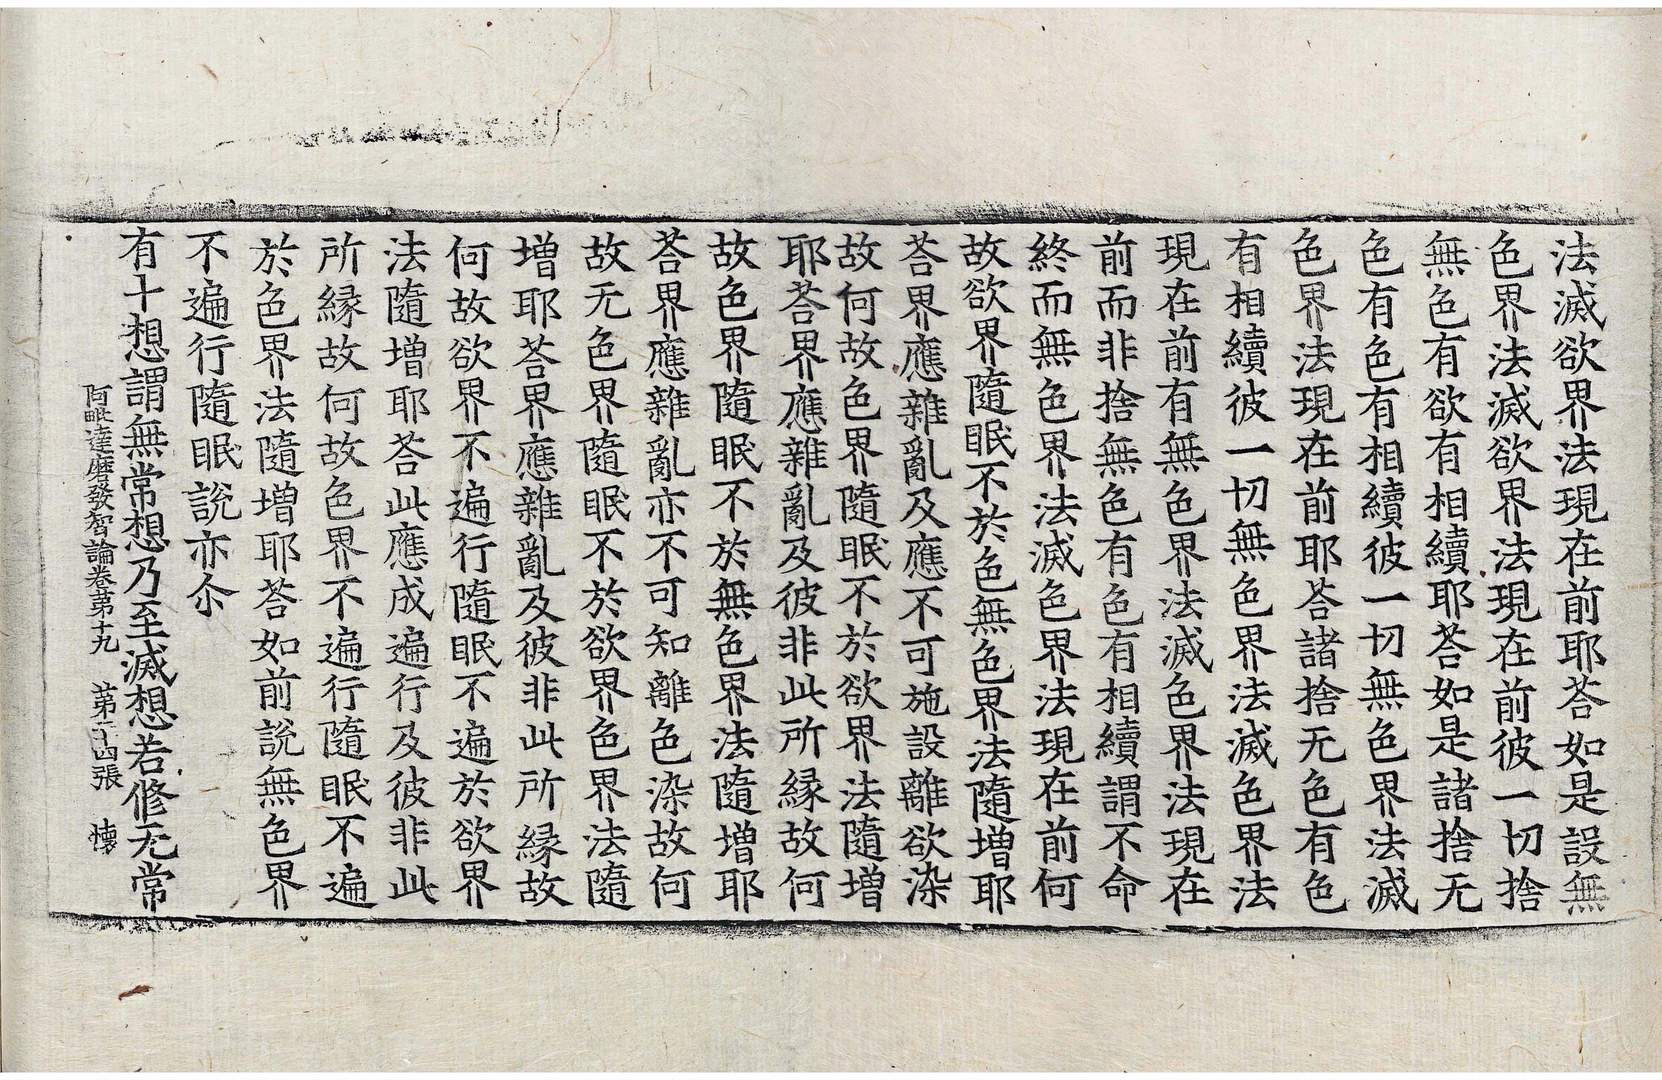 法滅欲界法現在前耶荅如是設無
色界法滅欲界法現在前彼一切捨
無色有欲有相續耶荅如是諸捨无
色有色有相續彼一切無色界法滅
色界法現在前耶荅諸捨无色有色
有相續彼一切無色界法滅色界法
現在前有無色界法滅色界法現在
前而非捨無色有色有相續謂不命
終而無色界法滅色界法現在前何
故欲界隨眠不於色無色界法隨增耶
荅界應雜亂及應不可施設離欲染
故何故色界隨眠不於欲界法隨增
耶荅界應雜亂及彼非此所緣故何
故色界隨眠不於無色界法隨增耶
荅界應雜亂亦不可知離色染故何
故无色界隨眠不於欲界色界法隨
增耶荅界應雜亂及彼非此所緣故
何故欲界不遍行隨眠不遍於欲界
法隨增耶荅此應成遍行及彼非此
所緣故何故色界不遍行隨眠不遍
於色界法隨增耶荅如前說無色界
不遍行隨眠說亦尒
有十想謂無常想乃至滅想若修无常
阿毗達磨發智論卷第十九 第二十四張 懷